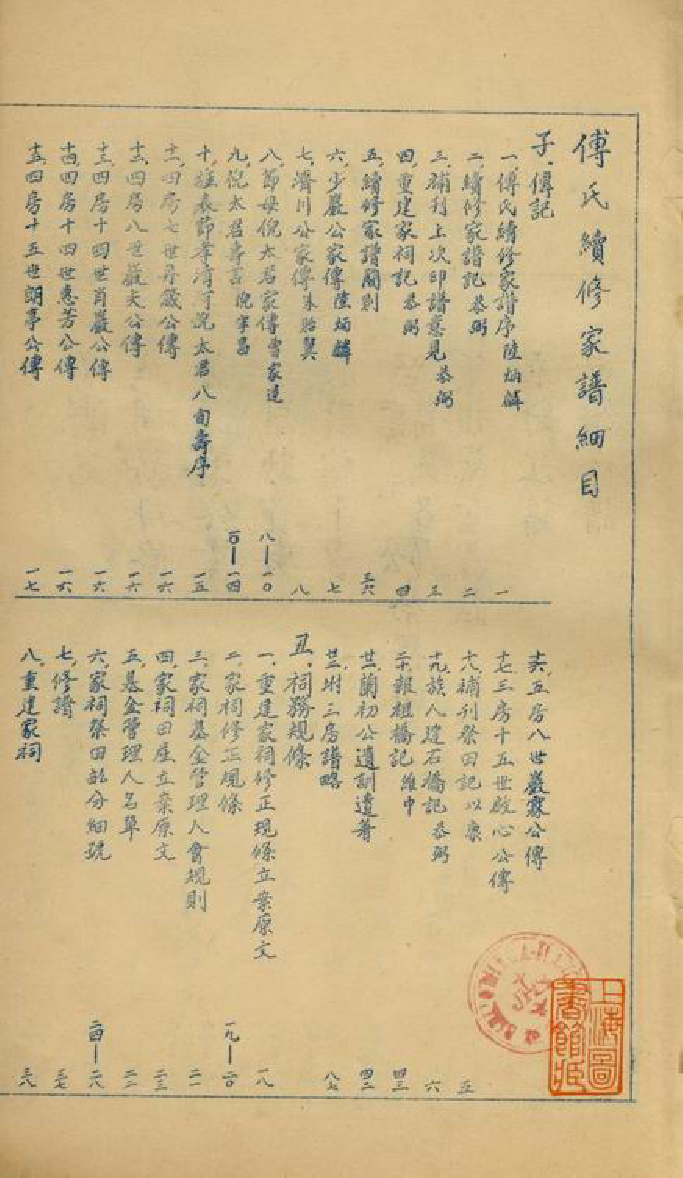 傅氏續修家譜細目
子、傳記
一、傅氏續修家譜序 陸炳麟 一
二、續修家譜記 恭弼 二
三、補刊上次印譜意見 恭弼 三
四、重建家祠記 恭弼 四
五、續修家譜簡則
六、少巖公家傳 陸炳麟 七
七、濟川公家傳 朱貽冀 八
八、節母倪太君家傳 曹家達 八—一〇
九、倪太君壽言 倪 一〇—一四
十、旌表節孝清 倪太君八旬壽序 一五
十一、四房七世丹巖公傳 一六
十二、四房八世巖夫公傳 一六
十三、四房十四世肖巖公傳 一六
十四、四房十四世惠芳公傳 一六
十五、四房十五世朗亭公傳 一七
十六、五房八世巖霖公傳
十七、三房十五世啟心公傳
十八、補刊祭田記 以康 五
十九、族人建石橋記 恭弼 六
二十、報祖橋記 維中 四三
廿一、蘭初公遺訓遺著 四二
廿二、坿三房譜略 八七
丑、祠務規條
一、重建家祠修正規條立案原文 一八
二、家祠修正規條 一九—二〇
三、家祠基金管理人會規則 二一
四、家祠田產立案原文 二三
五、基金管理人名單 二二
六、家祠祭田畝分細號 二四—二八
七、修譜 三七
八、重建家祠 三八
上海圖書館藏